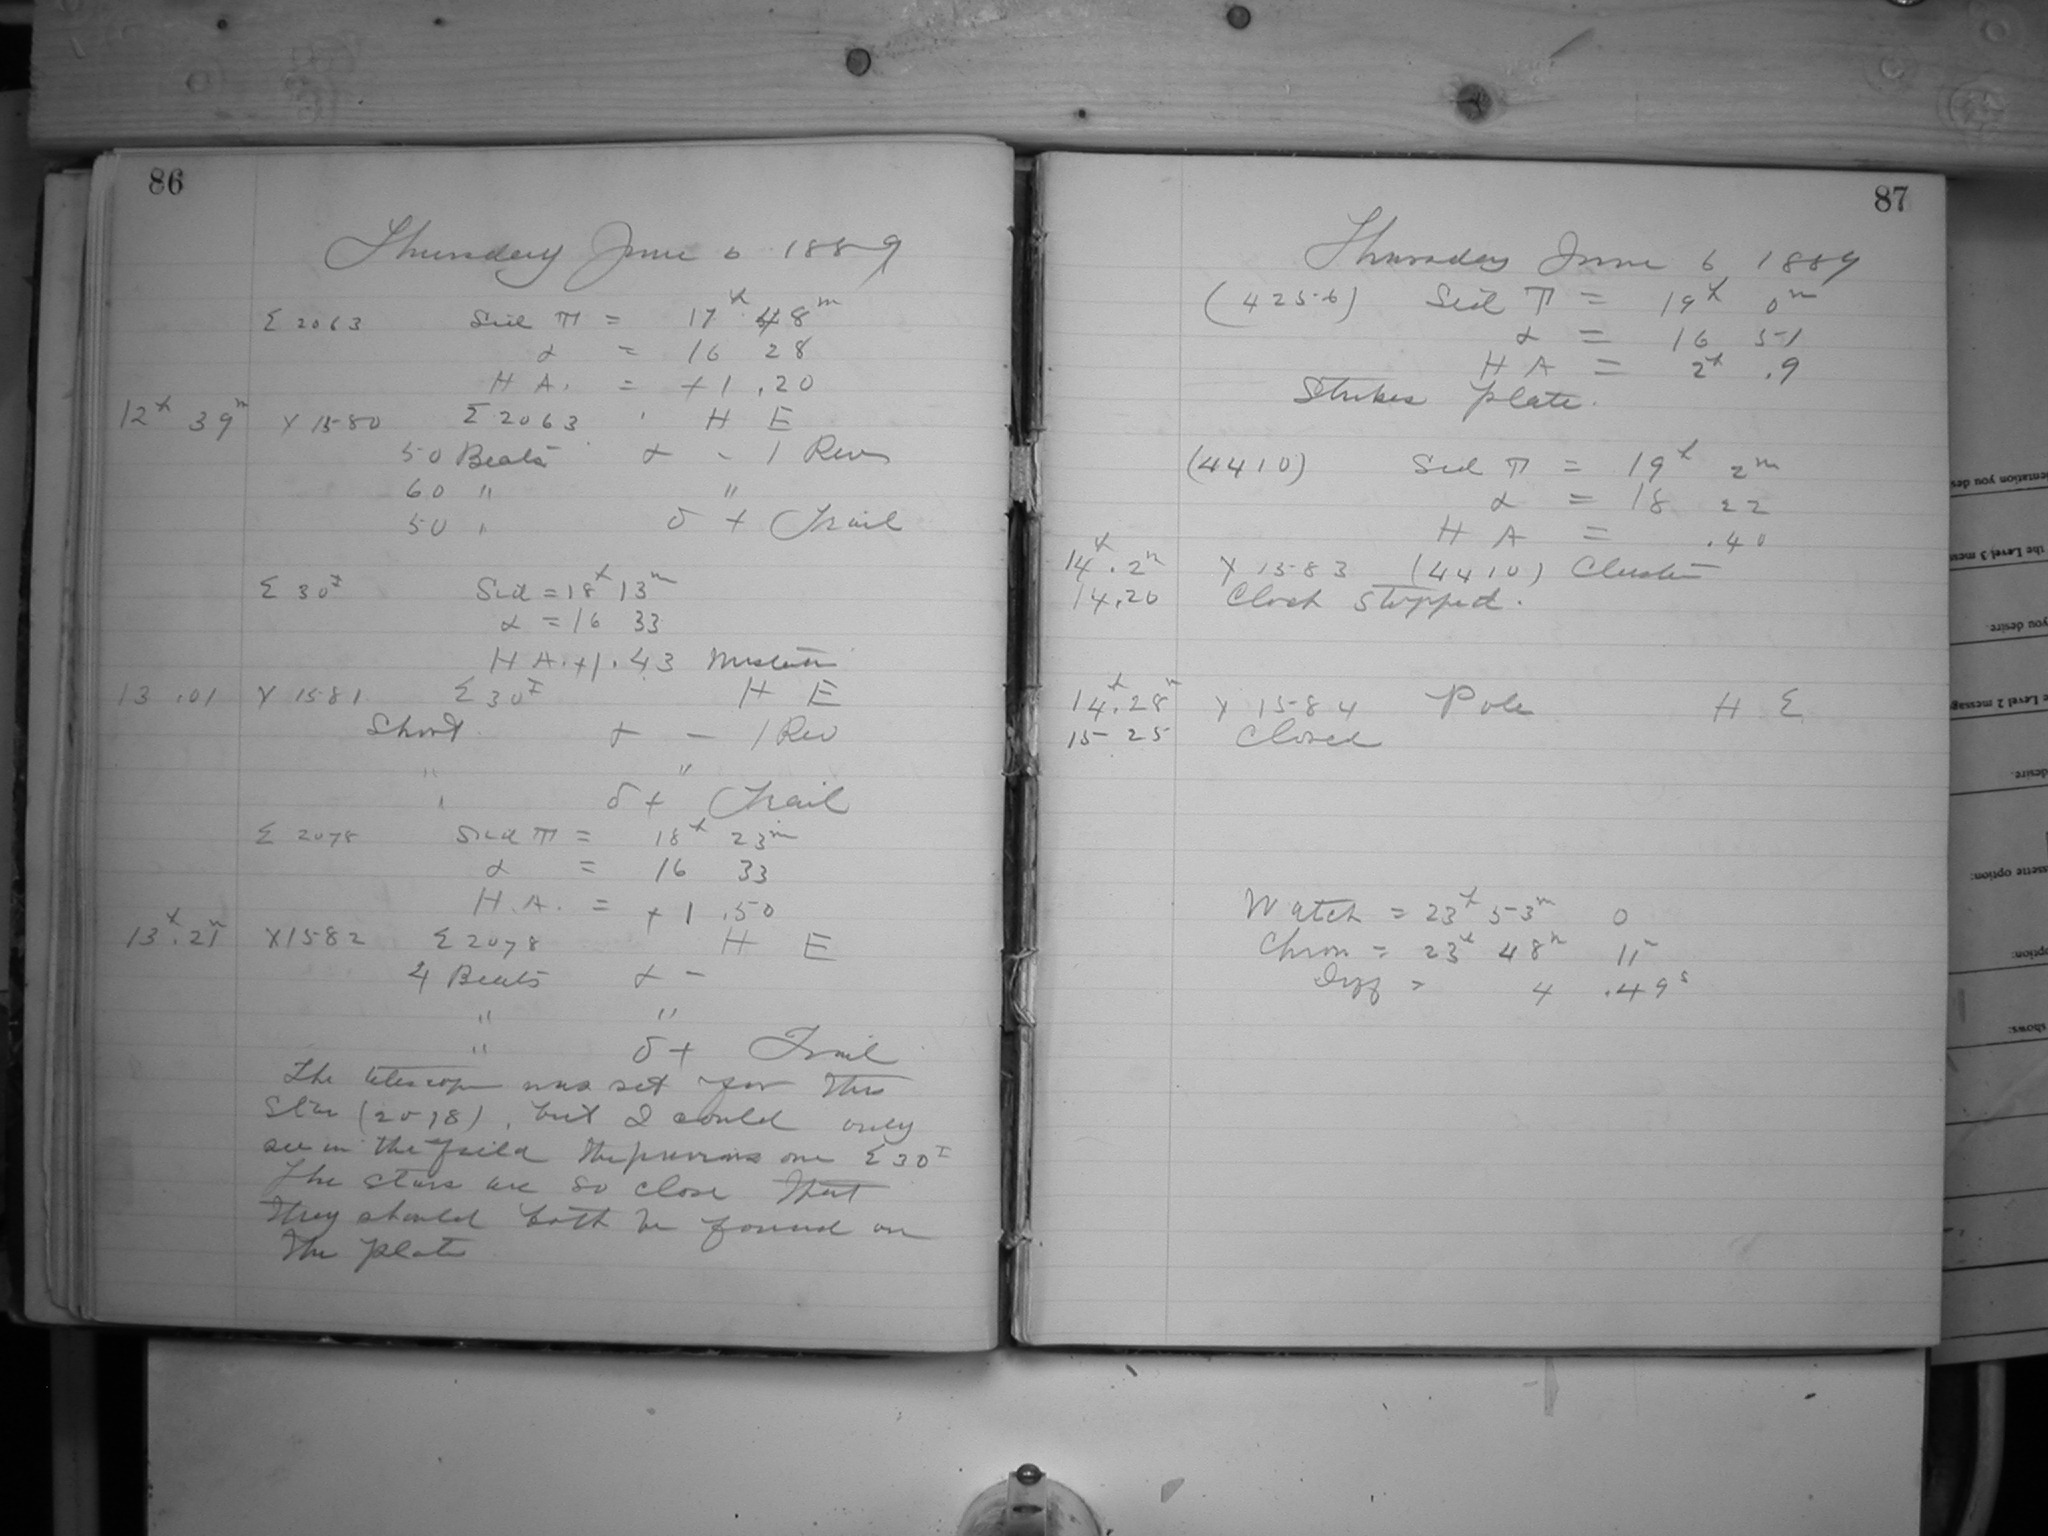 86
Thursday June 6 1889
Σ 2063 Sid T = 17h 48m
α = 16 28
H A. = +1 .20
12h 39m X 1580 Σ 2063 H E
50 Beats α - 1 Rev
60 " "
50 " δ + Trail
Σ 30I Sid = 18h 13m
α = 16 33
H A. +1.43
13 .01 X 1581 Σ 30I H E
Short α - 1 Rev
" "
" δ + Trail
Σ 2078 Sid T = 18h 23m
α = 16 33
H.A. = +1 .50
13h.21m X1582 Σ 2078 H E
4 Beats α -
" "
" δ + Trail
The telescope was set for this
Star (2078), but I could only
see in the field the previous one Σ 30I
The stars are so close that
they should both be found on
the plate
87
Thursday June 6, 1889
(4256) Sid T = 19h 0m
α = 16 51
H A = 2h .9
Strikes plate.
(4410) Sid T = 19h 2m
α = 18 22
H A = .40
14h.2m X 1583 (4410) Cluster
14.20 Clock stopped.
14h.28m X 1584 Pole H E
15 25 Closed
Watch = 23h 53m 0
Chron = 23h 48m 11s
Diff = 4 .49s
entation you des
the Level 3 mess
you desire.
e Level 2 message
desire.
ssette option:
option:
shows: